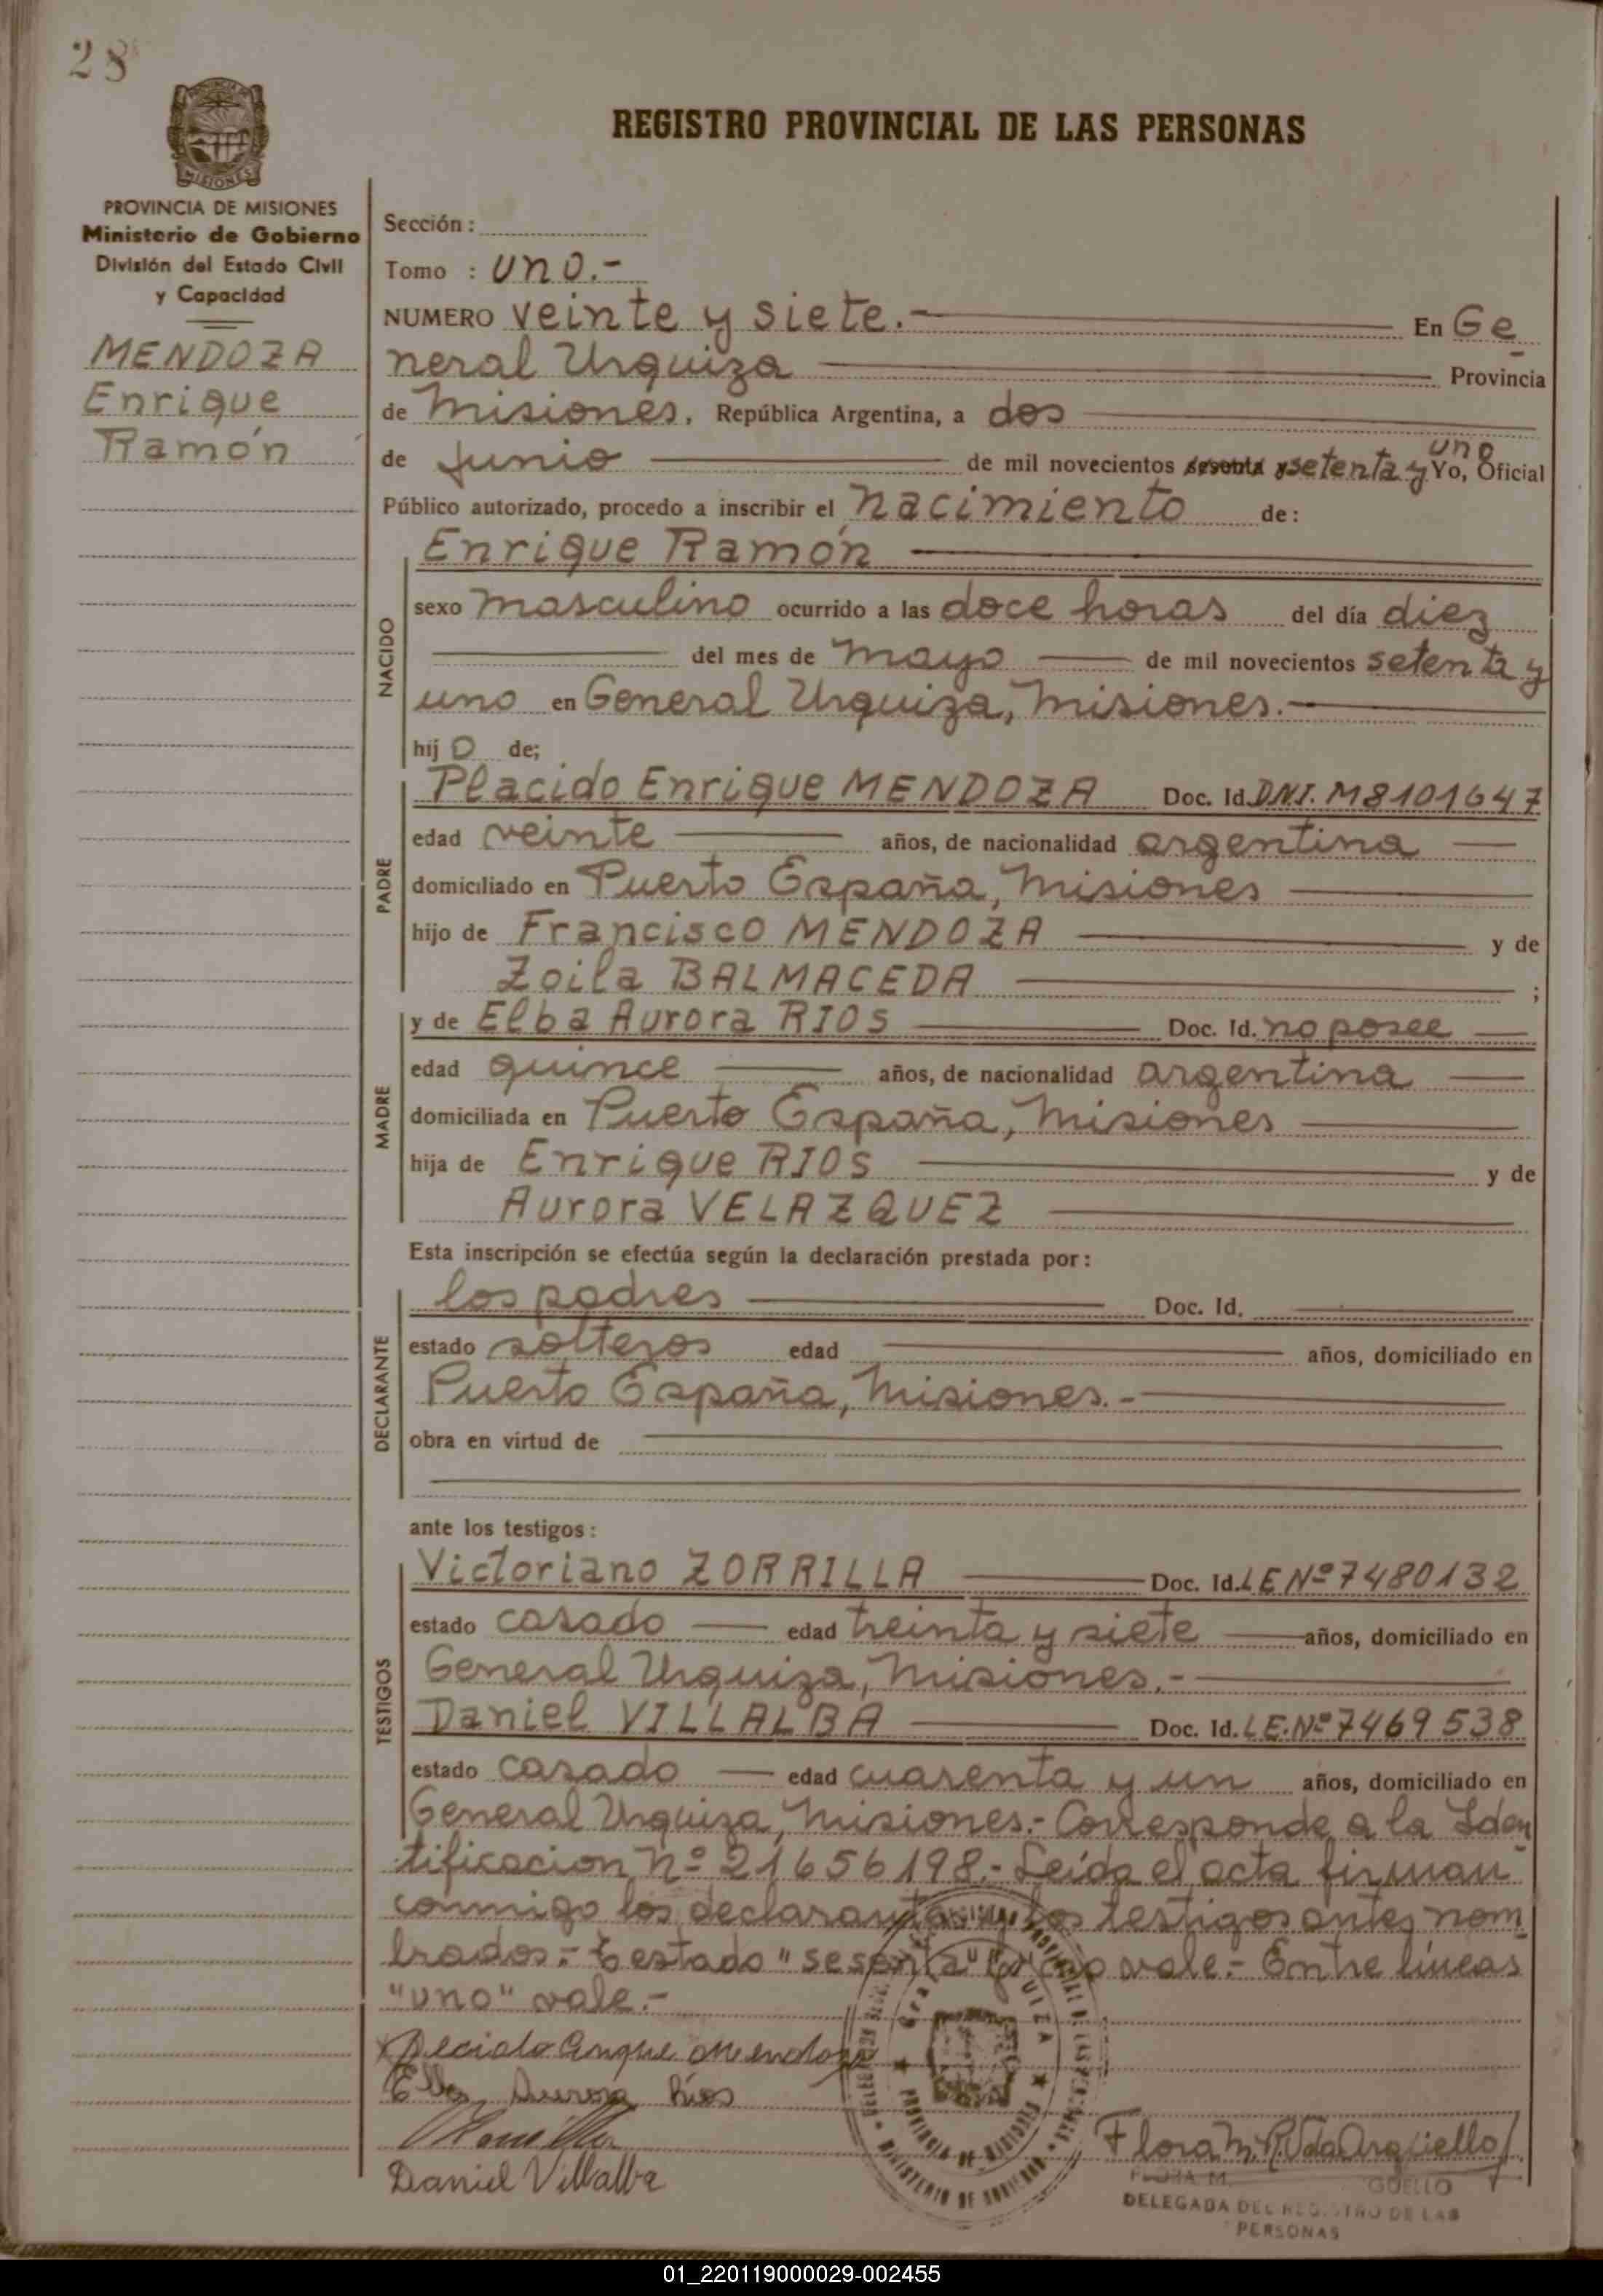 28
REGISTRO PROVINCIAL DE LAS PERSONAS
MISIONES
PROVINCIA DE MISIONES
Ministerio de Gobierno
División del Estado Civil
y Capacidad
MENDOZA
Enrique
Ramón
Sección :
Tomo : uno.-
NUMERO veinte y siete.- En Ge
neral Urquiza Provincia
de Misiones. República Argentina, a dos
de junio de mil novecientos sesenta y setenta y uno Yo, Oficial
Público autorizado, procedo a inscribir el nacimiento de:
NACIDO
Enrique Ramón
sexo masculino ocurrido a las doce horas del día diez
del mes de mayo de mil novecientos setenta y
uno en General Urquiza, Misiones.-
hij o de;
PADRE
Placido Enrique MENDOZA Doc. Id. DNI. M8101647
edad veinte años, de nacionalidad argentina
domiciliado en Puerto España, Misiones
hijo de Francisco MENDOZA y de
Zoila BALMACEDA ;
MADRE
y de Elba Aurora RIOS Doc. Id. no posee
edad quince años, de nacionalidad argentina
domiciliada en Puerto España, Misiones
hija de Enrique RIOS y de
Aurora VELAZQUEZ
Esta inscripción se efectúa según la declaración prestada por:
DECLARANTE
los padres Doc. Id.
estado solteros edad años, domiciliado en
Puerto España, Misiones.-
obra en virtud de
ante los testigos:
TESTIGOS
Victoriano ZORRILLA Doc. Id. LE Nº 7480132
estado casado edad treinta y siete años, domiciliado en
General Urquiza, Misiones.-
Daniel VILLALBA Doc. Id. L E. Nº 7469538
estado casado edad cuarenta y un años, domiciliado en
General Urquiza, Misiones.- Corresponde a la Iden
tificacion Nº 21656198.- Leída el acta firman
conmigo los declarantes y los testigos antes nom
brados.- Testado "sesenta" no vale.- Entre líneas
"uno" vale.-
Elba Aurora Rios
Daniel Villalba
Flora M. R. Vda Argüello
FLORA M. GÜELLO
DELEGADA DEL REGISTRO DE LAS
PERSONAS
PROVINCIA DE MISIONES
MINISTERIO DE GOBIERNO
01_220119000029-002455